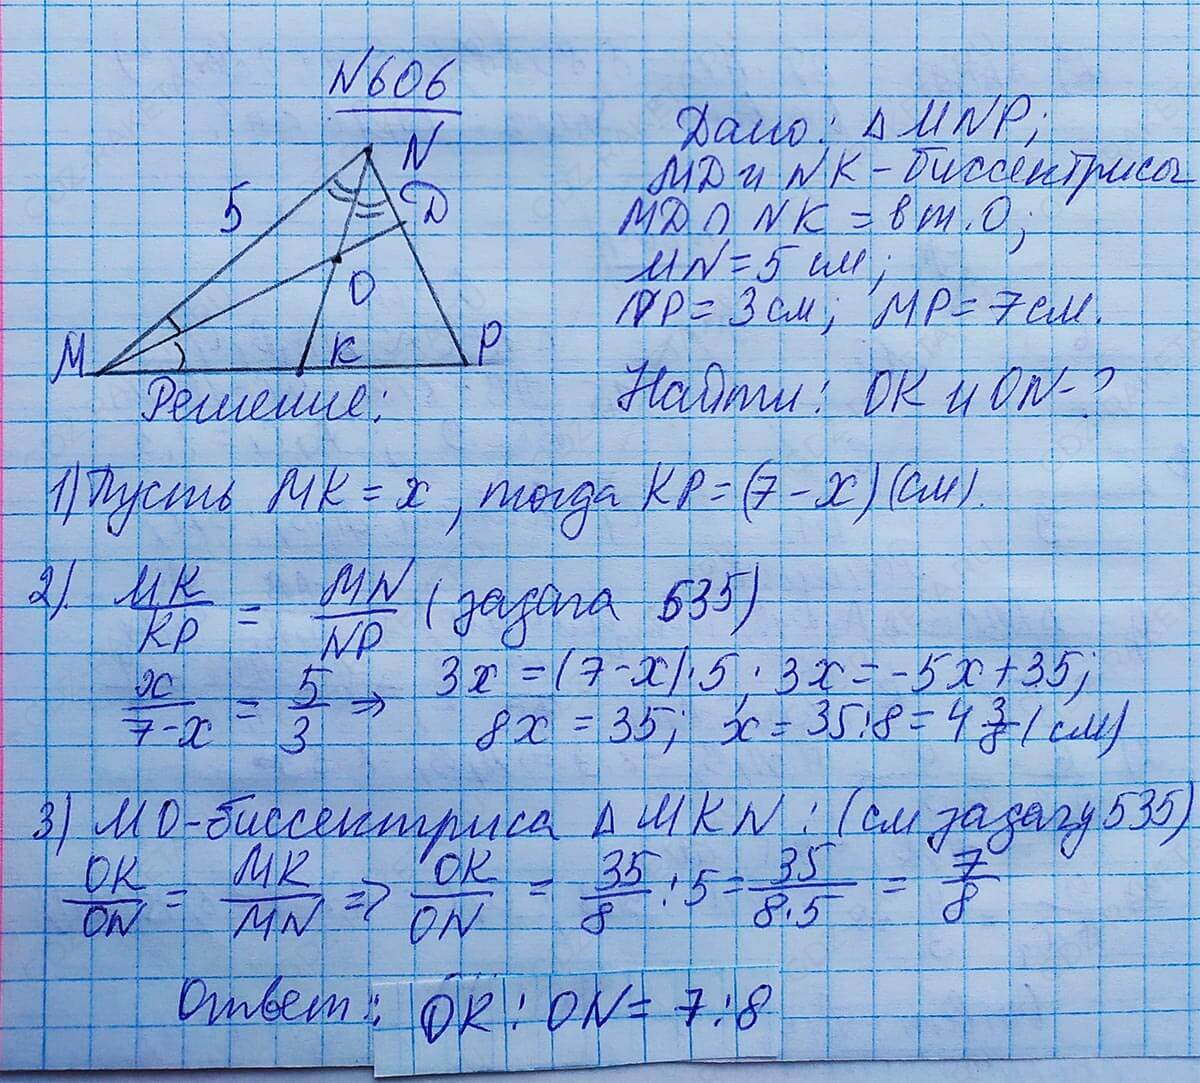 N606
N
5
D
O
M
K
P
Дано: △MNP;
MD и NK - биссектрисы
MD ∩ NK = в т. O;
MN = 5 см;
NP = 3 см; MP = 7 см.
Найти: OK и ON - ?
Решение:
1) Пусть MK = x, тогда KP = (7 - x) (см).
2). MK/KP = MN/NP (задача 535)
x/(7-x) = 5/3 ⇒ 3x = (7-x)·5; 3x = -5x + 35;
8x = 35; x = 35:8 = 4 3/8 (см)
3) MO - биссектриса △MKN: (см задачу 535)
OK/ON = MK/MN ⇒ OK/ON = 35/8 : 5 = 35/(8·5) = 7/8
Ответ: OK : ON = 7:8